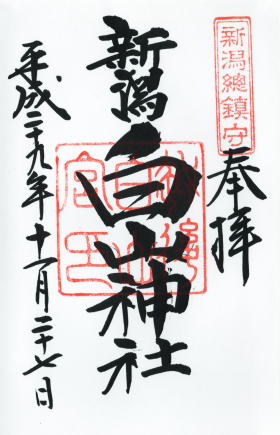 新潟總鎮守
奉拝
新潟白山神社
平成二十九年十一月二十七日